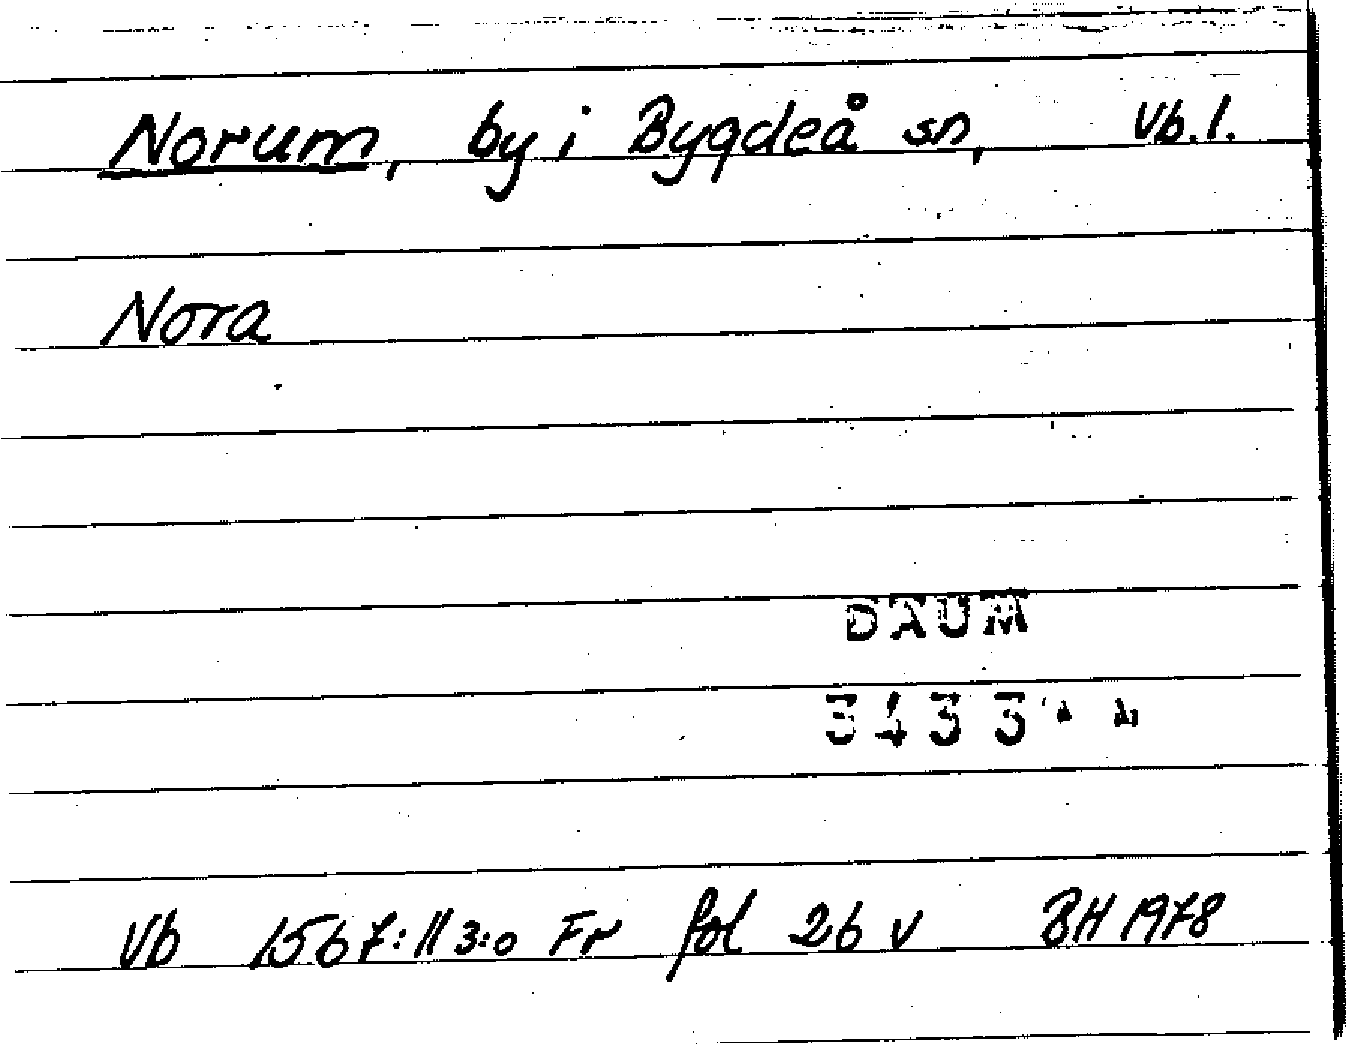 Norum, by i Bygdeå sn, Vb.l.
Nora
DAUM
3433
Vb 1567:11 3:o Fr fol 26 v BH 1978